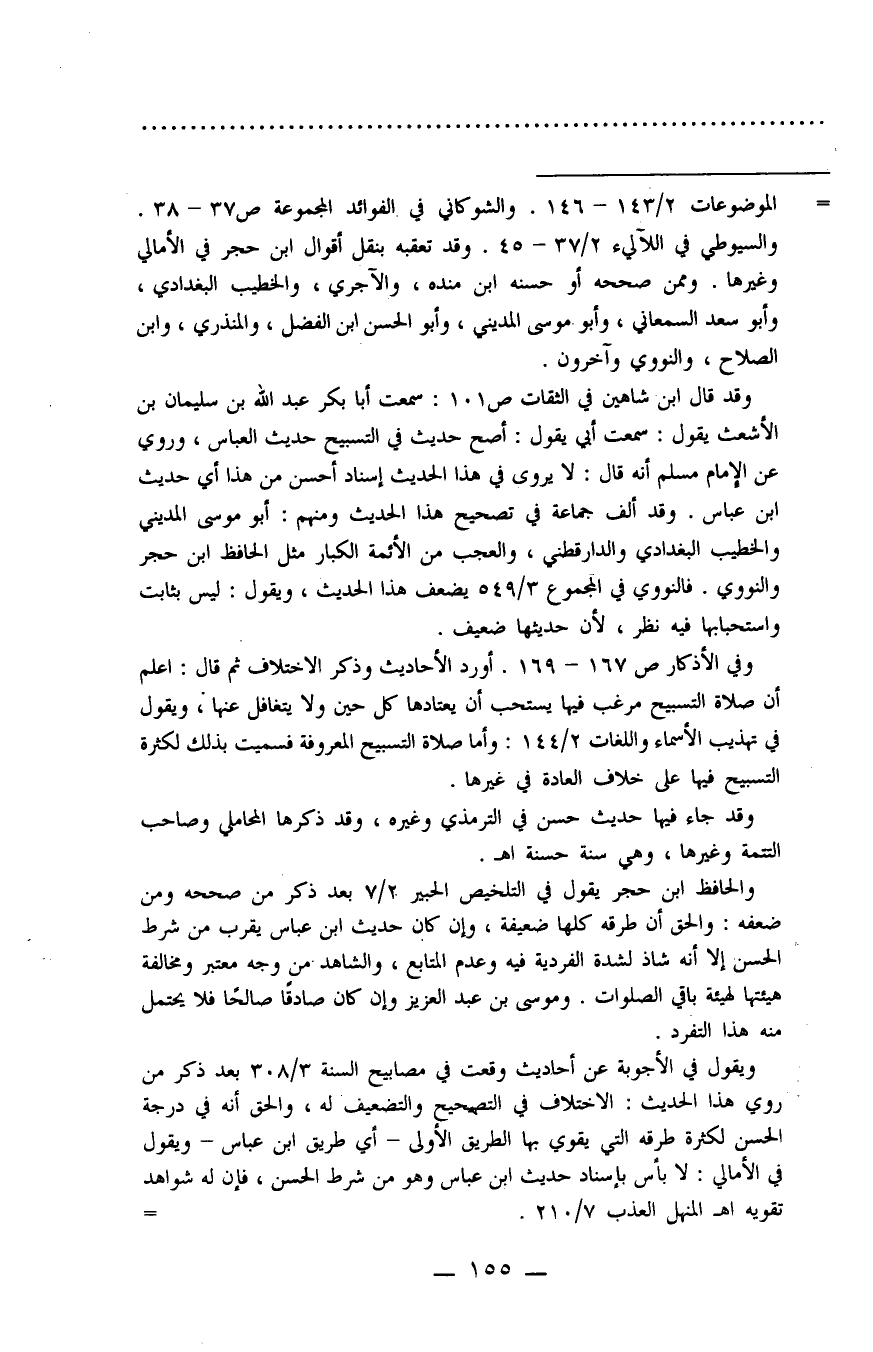 = الموضوعات ١٤٣/٢ – ١٤٦ . والشوكاني في الفوائد المجموعة ص٣٧ – ٣٨ .
والسيوطي في اللآليء ٣٧/٢ – ٤٥ . وقد تعقبه بنقل أقوال ابن حجر في الأمالي
وغيرها . وممن صححه أو حسنه ابن منده ، والآجري ، والخطيب البغدادي ،
وأبو سعد السمعاني ، وأبو موسى المديني ، وأبو الحسن ابن الفضل ، والمنذري ، وابن
الصلاح ، والنووي وآخرون .
وقد قال ابن شاهين في الثقات ص١٠١ : سمعت أبا بكر عبد الله بن سليمان بن
الأشعث يقول : سمعت أبي يقول : أصح حديث في التسبيح حديث العباس ، وروي
عن الإمام مسلم أنه قال : لا يروى في هذا الحديث إسناد أحسن من هذا أي حديث
ابن عباس . وقد ألف جماعة في تصحيح هذا الحديث ومنهم : أبو موسى المديني
والخطيب البغدادي والدارقطني ، والعجب من الأئمة الكبار مثل الحافظ ابن حجر
والنووي . فالنووي في المجموع ٥٤٩/٣ يضعف هذا الحديث ، ويقول : ليس بثابت
واستحبابها فيه نظر ، لأن حديثها ضعيف .
وفي الأذكار ص ١٦٧ – ١٦٩ . أورد الأحاديث وذكر الاختلاف ثم قال : اعلم
أن صلاة التسبيح مرغب فيها يستحب أن يعتادها كل حين ولا يتغافل عنها ، ويقول
في تهذيب الأسماء واللغات ١٤٤/٢ : وأما صلاة التسبيح المعروفة فسميت بذلك لكثرة
التسبيح فيها على خلاف العادة في غيرها .
وقد جاء فيها حديث حسن في الترمذي وغيره ، وقد ذكرها المحاملي وصاحب
التتمة وغيرها ، وهي سنة حسنة اهـ .
والحافظ ابن حجر يقول في التلخيص الحبير ٧/٢ بعد ذكر من صححه ومن
ضعفه : والحق أن طرقه كلها ضعيفة ، وإن كان حديث ابن عباس يقرب من شرط
الحسن إلا أنه شاذ لشدة الفردية فيه وعدم المتابع ، والشاهد من وجه معتبر ومخالفة
هيئتها لهيئة باقي الصلوات . وموسى بن عبد العزيز وإن كان صادقًا صالحًا فلا يحتمل
منه هذا التفرد .
ويقول في الأجوبة عن أحاديث وقعت في مصابيح السنة ٣٠٨/٣ بعد ذكر من
روي هذا الحديث : الاختلاف في التصحيح والتضعيف له ، والحق أنه في درجة
الحسن لكثرة طرقه التي يقوي بها الطريق الأولى – أي طريق ابن عباس – ويقول
في الأمالي : لا بأس بإسناد حديث ابن عباس وهو من شرط الحسن ، فإن له شواهد
تقويه اهـ المنهل العذب ٢١٠/٧ . =
— ١٥٥ —